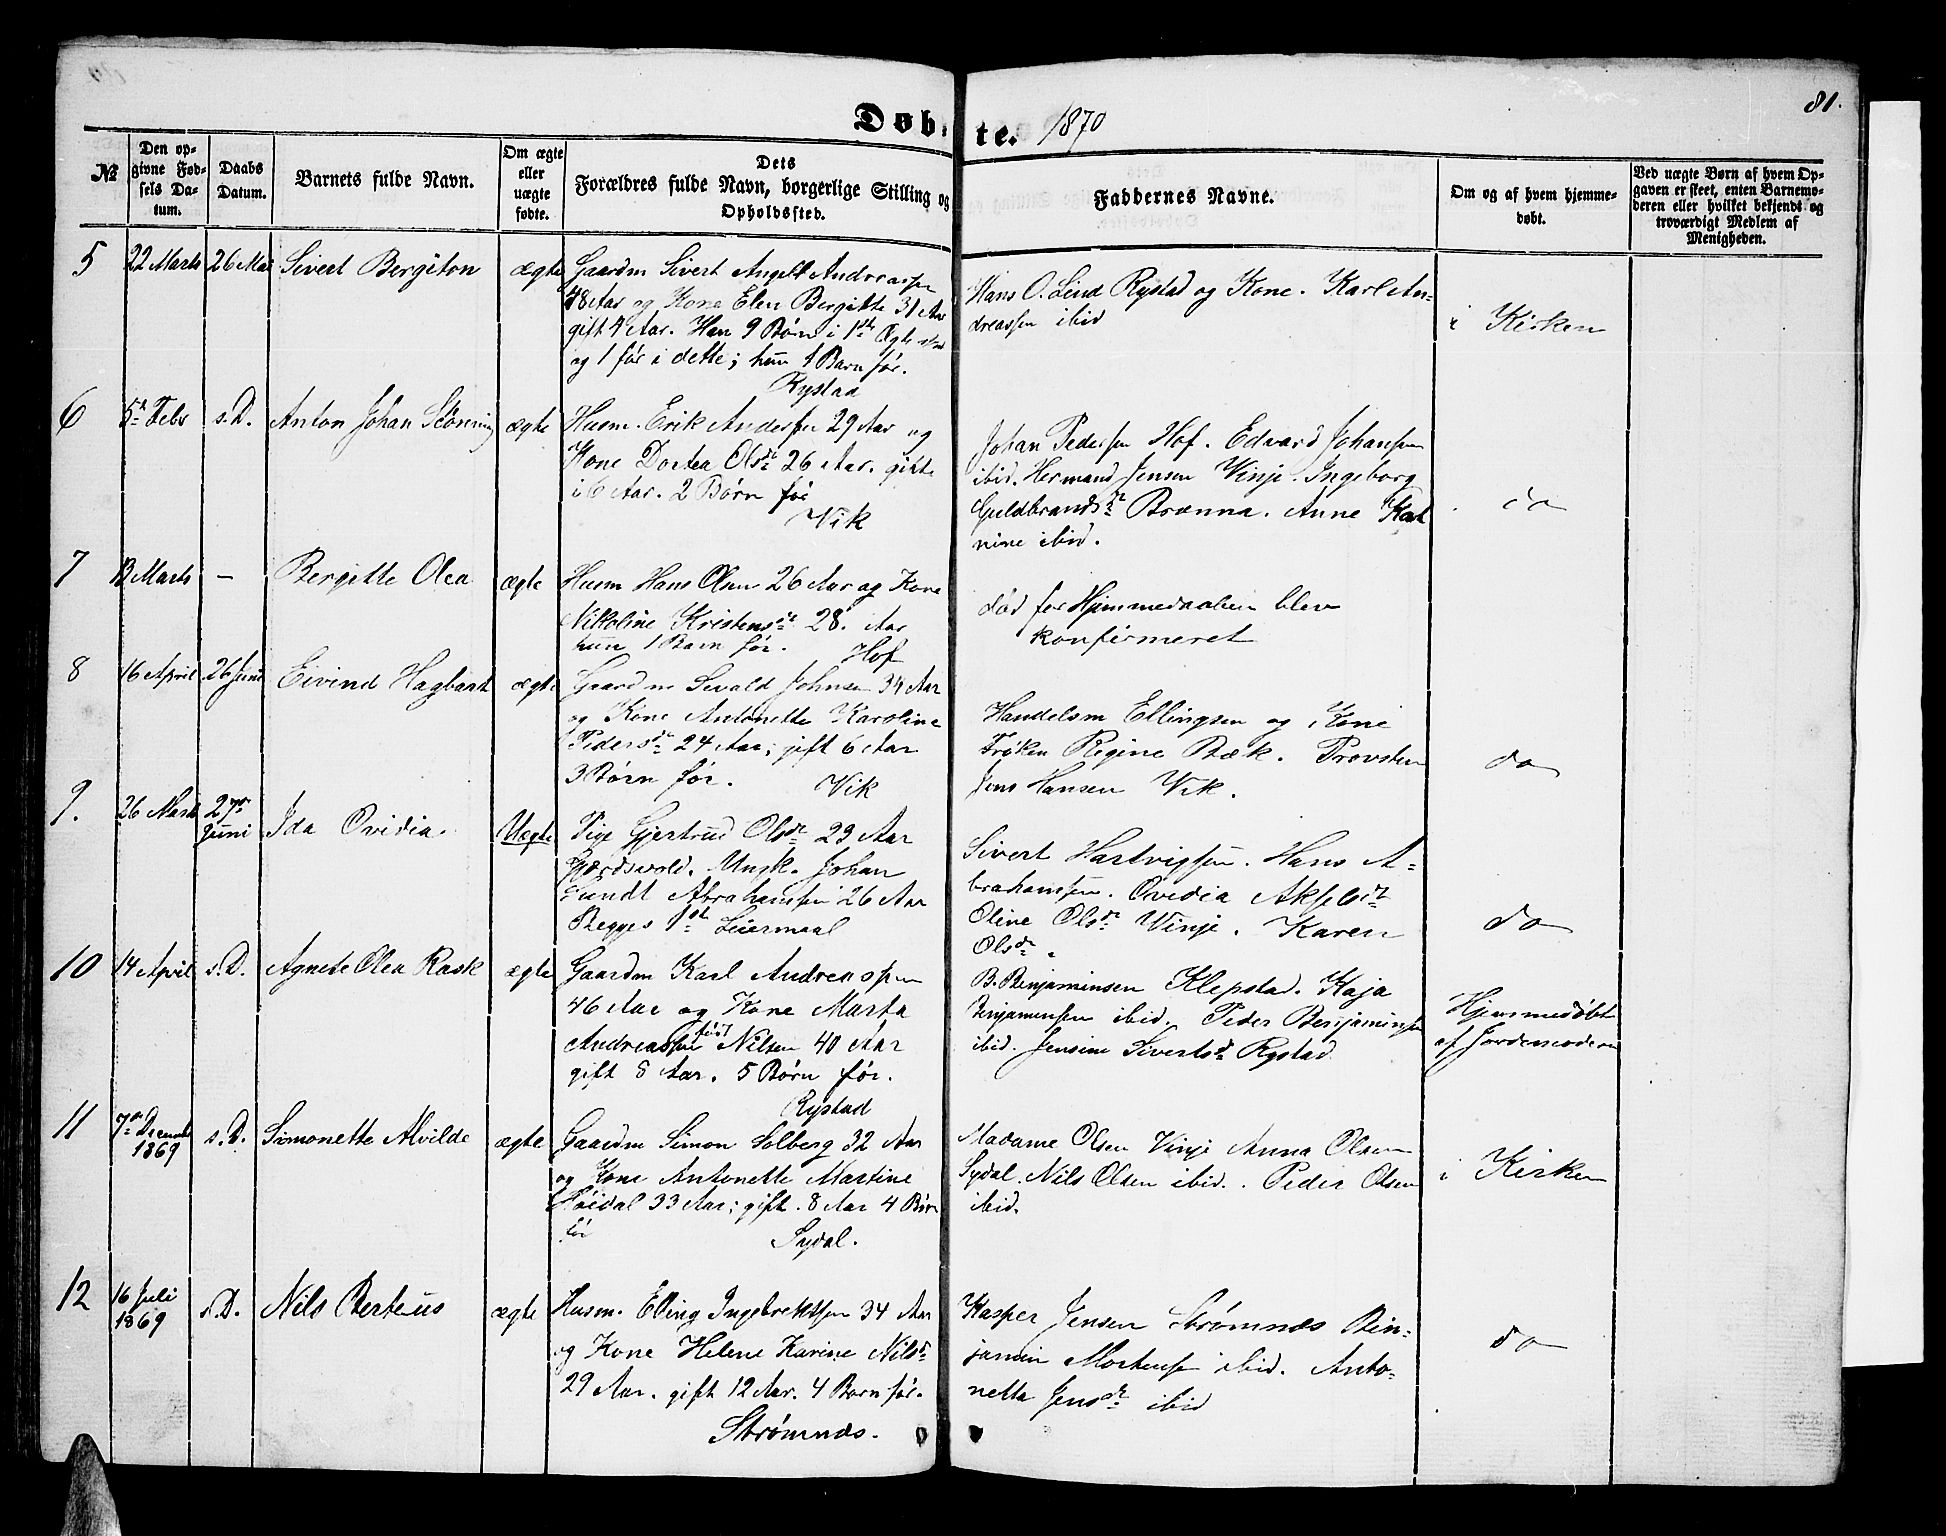 Døbte. 1870
81.
№
Den op-
givne Fød-
sels Da-
tum.
Daabs
Datum.
Barnets fulde Navn.
Om ægte
eller
uægte
fødte.
Dets
Forældres fulde Navn, borgerlige Stilling og
Opholdssted.
Faddernes Navne.
Om og af hvem hjemme-
døbt.
Ved uægte Børn af hvem Op-
gaven er skeet, enten Barnemo-
deren eller hvilket bekjendt og
troværdigt Medlem af
Menigheden.
5 22 Marts 26 Mai Sivert Bergiton ægte
Gaardm Sivert Angell Andreassen
48 Aar og Kone Elen Bergitte 31 Aar
gift 4 Aar. Han 9 Børn i 1ste Ægtestand
og 1 før i dette; hun 1 Barn før.
Rystad
Hans O. Lind Rystad og Kone. Karl An-
dreassen ibid
i Kirken
6 5te Febr s.D. Anton Johan Stönning ægte
Husm. Erik Andersen 29 Aar og
Kone Dortea Olsdr 26 Aar. gifte
i 6 Aar. 2 Børn før
Vik
Johan Pedersen Hof. Edvard Johansen
ibid. Hermand Jensen Vinje. Ingeborg
Guldbrandsdr Brænna. Anne Kat
nine ibid.
do
7 13 Marts — Bergitte Olea ægte
Husm Hans Olsen 26 Aar og Kone
Nikoline Kristensdr 28. Aar
hun 1 Barn før. Hof
død før Hjemmedaaben blev
konfirmeret
8 16 April 26 Juni Eivind Hagbart ægte
Gaardm Sivald Johnsen 34 Aar
og Kone Antonette Karoline
Pedersdr 24 Aar; gift 6 Aar
3 Børn før. Vik
Handelsm Ellingsen og Kone
Frøken Regine Bæk. Provsten
Jens Hansen Vik.
do
9. 26 Marts 27de
Juni Ida Ovidia. Uægte
Pige Gjertrud Olsdr 23 Aar
Gjærdsvold. Ungk. Johan
Lundt Abrahamsen 26 Aar
Begges 1ste Leiermaal
Sivert Hartvigsen. Hans A-
brahamsen. Ovidia Akselsdr
Oline Olsdr Vinje. Karen
Olsdr.
do
10 14 April s.D. Agnete Olea Rask ægte
Gaardm Karl Andreassen
46 Aar og Kone Marta
Andreassen født Nilsen 40 Aar
gift 8 Aar. 5 Børn før.
Rystad
B. Benjaminsen Klepstad. Kaja
Benjaminsen ibid. Peder Benjaminsen
ibid. Jensine Sivertsdr Rystad
Hjemmedøbt
af Jordemoderen
11 7de Decembr
1869 s.D. Simonette Alvilde ægte
Gaardm Simon Solberg 32 Aar
og Kone Antonette Martine
Høidal 33 Aar; gift. 8 Aar 4 Børn
før
Sydal.
Madame Olsen Vinje Anna Olsen
Sydal. Nils Olsen ibid.. Peder Olsen
ibid.
i Kirken
12 16 Juli
1869 s.D. Nils Berteus ægte
Husm. Elling Ingebrektsen 34 Aar
og Kone Helene Karine Nilsdr
29 Aar. gift 12 Aar. 4 Børn før.
Strømnæs.
Kasper Jensen Strømnæs Ben-
jamin Mortensen ibid. Anto-
netta Jensdr ibid
do